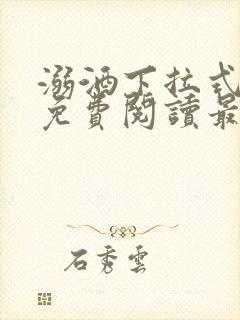 溺酒下拉式
免費閱讀最
石秀雲